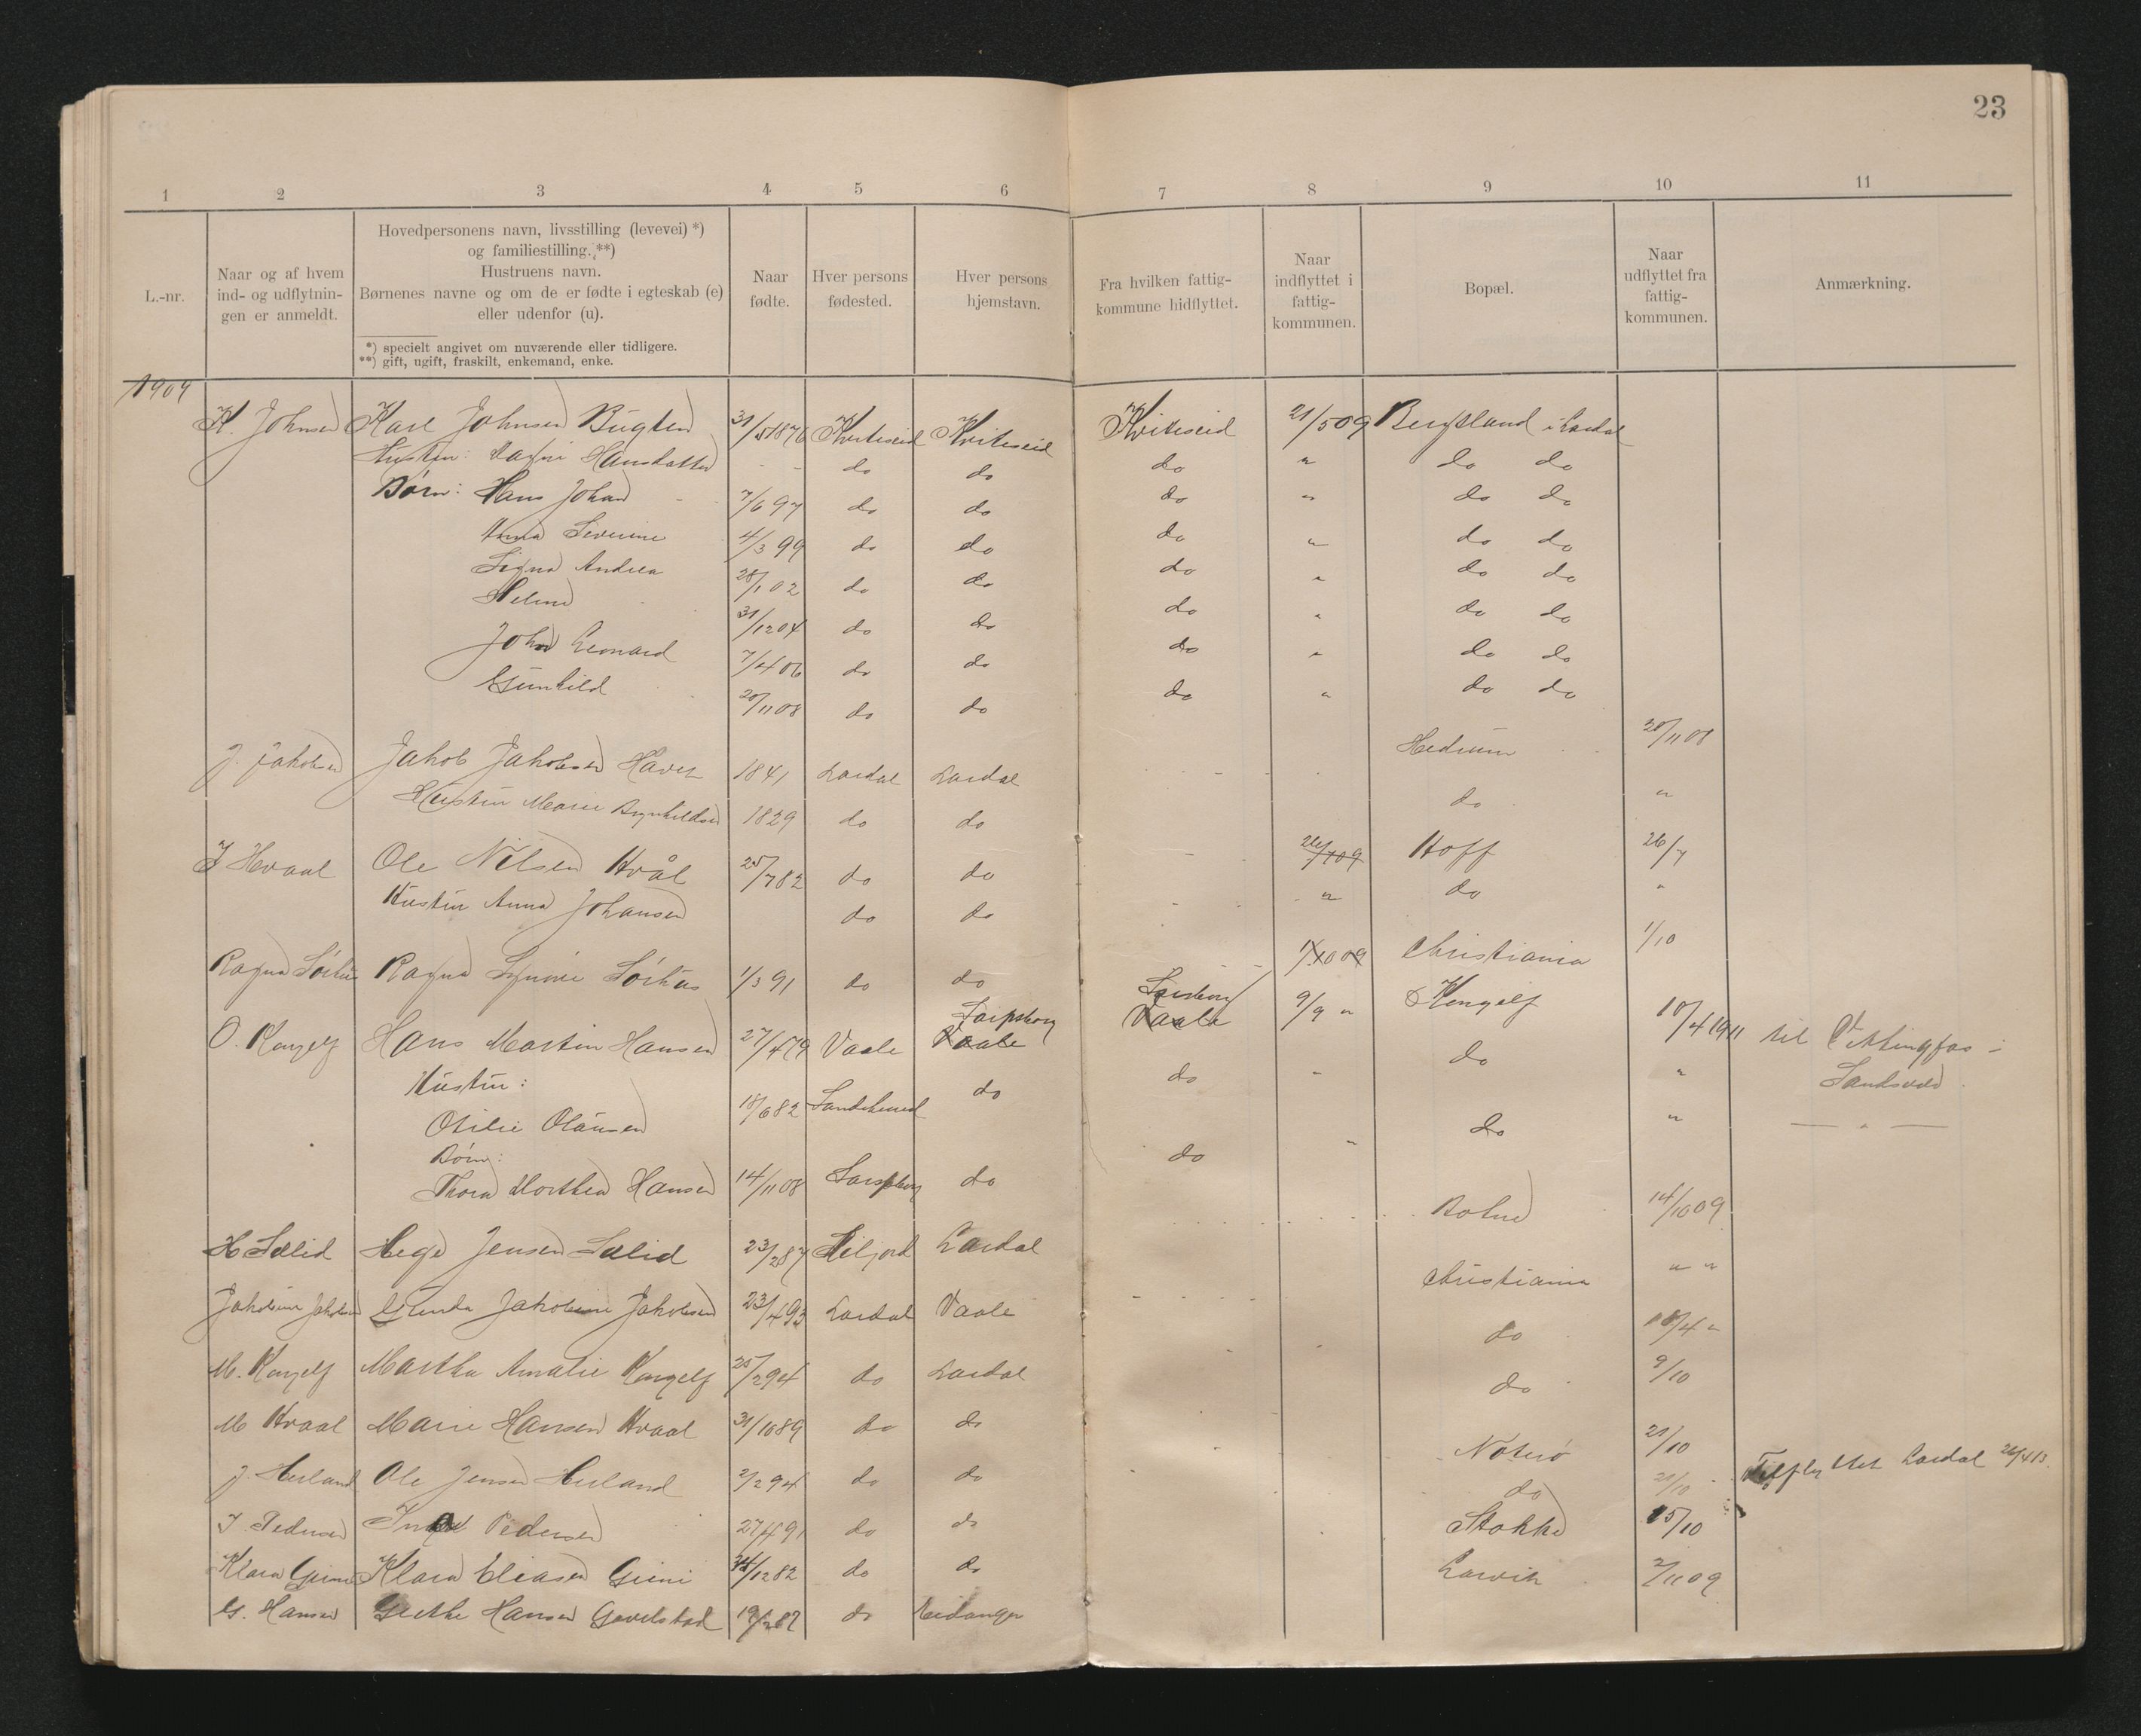 23
1 2 3 4 5 6 7 8 9 10 11
L.-nr.
Naar og af hvem
ind- og udflytnin-
gen er anmeldt.
Hovedpersonens navn, livsstilling (levevei) *)
og familiestilling. **)
Hustruens navn.
Børnenes navne og om de er fødte i egteskab (e)
eller udenfor (u).
*) specielt angivet om nuværende eller tidligere.
**) gift, ugift, fraskilt, enkemand, enke.
Naar
fødte.
Hver persons
fødested.
Hver persons
hjemstavn.
Fra hvilken fattig-
kommune hidflyttet.
Naar
indflyttet i
fattig-
kommunen.
Bopæl.
Naar
udflyttet fra
fattig-
kommunen.
Anmærkning.
1909
K. Johnsen Karl Johnsen Bugten 31/5 1876 Kviteseid Kviteseid Kviteseid 21/5 09 Bergsland i Lardal
Hustru: Hansdatter - - do do do " do do
Børn: Hans Johan - - 7/6 97 do do do " do do
Anna Severine 4/3 99 do do do " do do
Signe Andrea 28/1 02 do do do " do do
Helene 31/12 04 do do do " do do
John Leonard 7/4 06 do do do " do do
Gunhild 20/11 08 do do do " do do
J. Jakobsen Jakob Jakobsen Haven 1841 Lardal Lardal - - - Hedrum 30/11 08
Hustru Marie Brynhildsen 1829 do do do "
J Hvaal Ole Nilsen Kvål 25/7 82 do do - 26/7 09 Hoff 26/7
Hustru Anna Johansen do do - - " do "
Ragna Sørhus Ragna Sørhus 1/3 91 do do - 1/10 09 Christiania 1/10
O. Kongelf Hans Martin Hansen 27/4 79 Vaale Sarpsborg Vaale Sarpsborg Vaale 9/9 " Kongelf 10/4 1911 til i
Hustru: do do " do " Sandsver
Otilie Olausen 18/6 82 Sandeherred
Børn:
Thora Dorthea Hansen 14/11 08 Sarpsborg do do " do " — " —
H Sælid Hege Jensen Sælid 23/2 87 Siljord Lardal Botne 14/10 09
Jakobine Jakobsen Gunda Jakobine Jakobsen 23/4 93 Lardal Vaale - - - Christiania " "
M. Kongelf Martha Amalie Kongelf 25/2 94 do Lardal - - do 10/4 "
M Kvaal Marie Hansen Kvaal 31/10 89 do do - do 9/10
J. Herland Ole Jensen Herland 2/2 94 do do - Nøterø 21/10
J. Pedersen Pedersen 27/4 91 do do - do 21/10 Tilflyttet Lardal 26/4 13.
Klara Grini Klara Eliasen Grini 12 82 do do Stokke 15/10
G. Hansen Grethe Hansen Gavelstad 19/2 87 do Eidanger Larvik 2/11 09